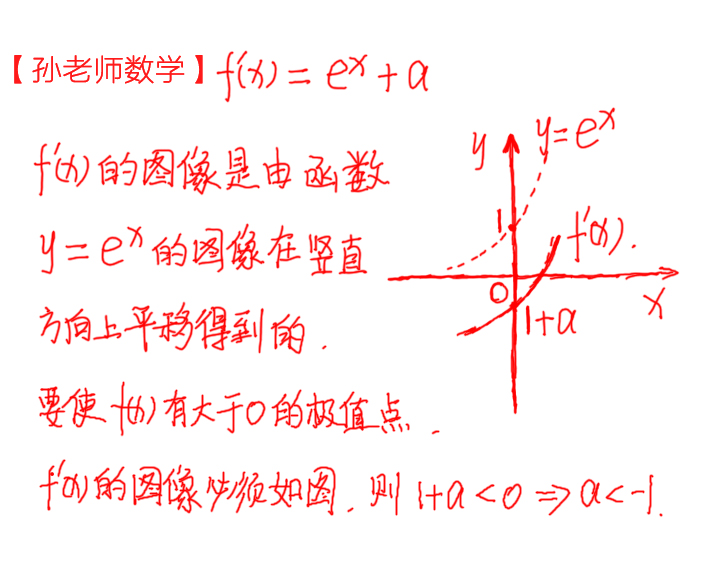 【孙老师数学】f'(x)=eˣ+a
f'(x)的图像是由函数
y=eˣ的图像在竖直
方向上平移得到的.
要使f(x)有大于0的极值点.
f'(x)的图像必须如图.则1+a<0⇒a<-1.
y
y=eˣ
1
f'(x).
0
x
1+a